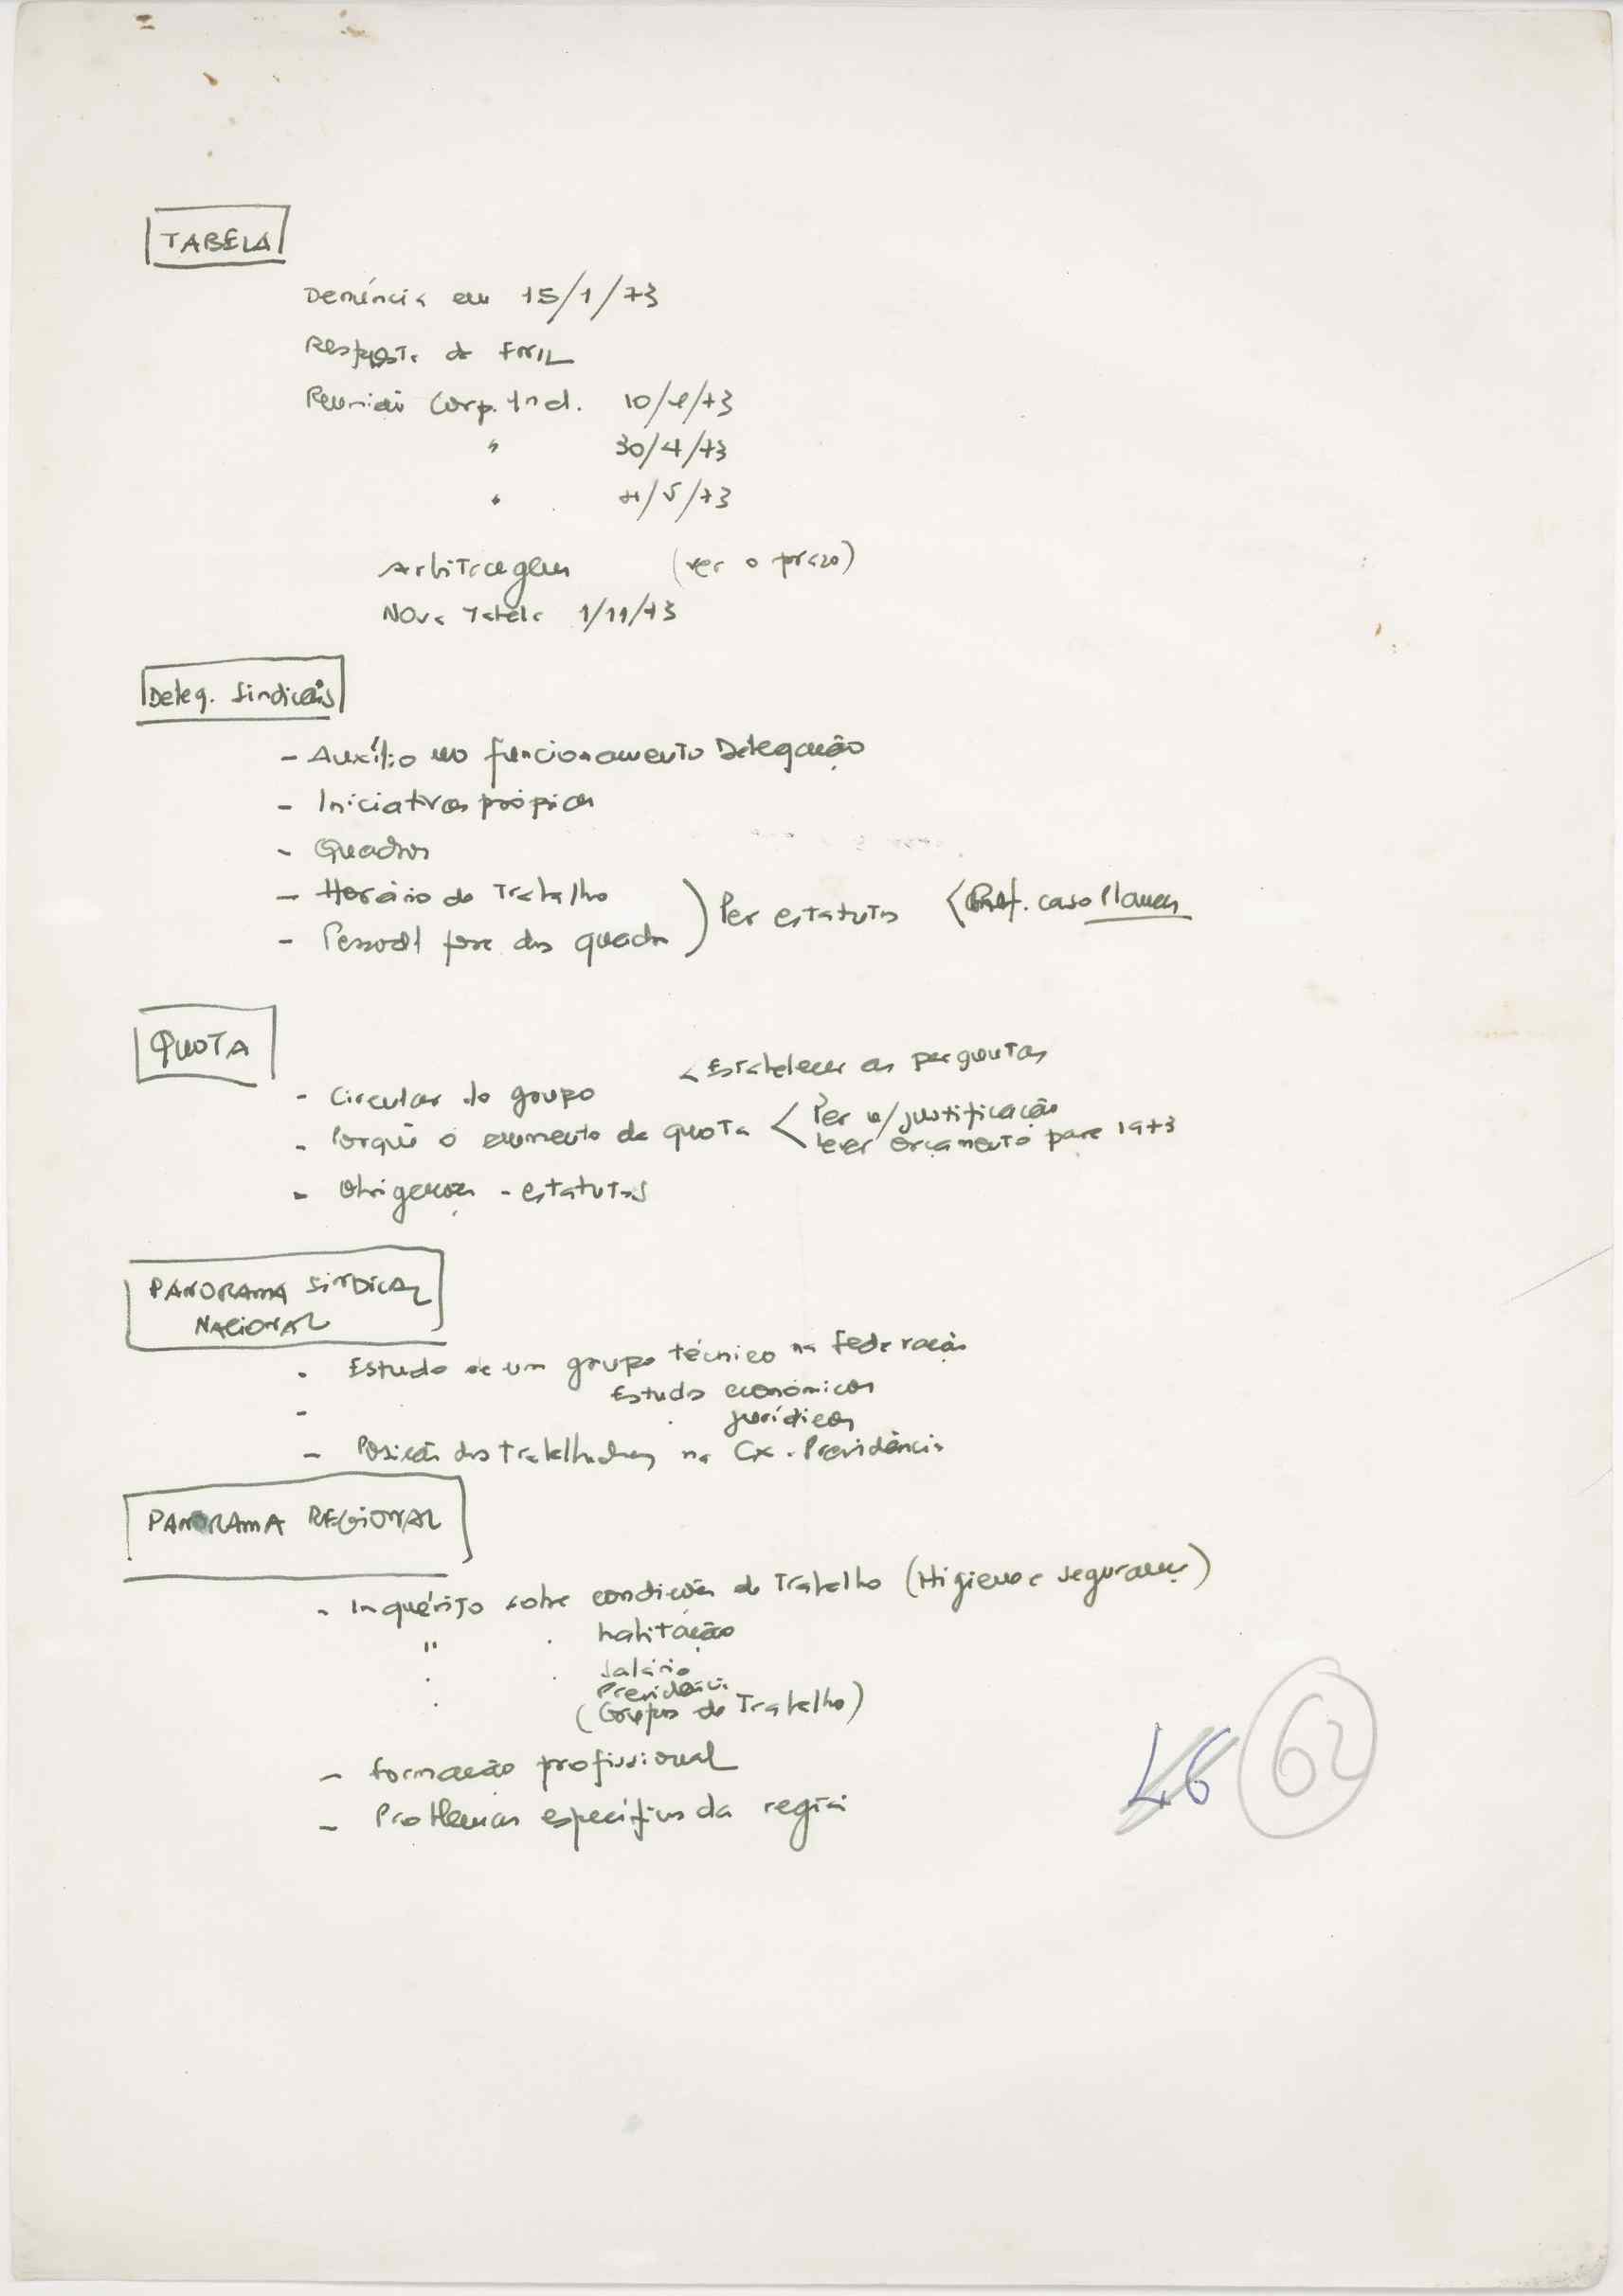 TABELA
Denúncia em 15/1/73
Resposta do FNIL
Reunião Corp. Ind. 10/4/73
" 30/4/73
" /5/73
Arbitragem (ver o prazo)
Nova Tabela 1/11/73
Deleg. Sindicais
- Auxílio no funcionamento Delegação
- Iniciativas própias
- Quadros
- Horário do Trabalho
- Pessoal fora dos quadros ) Ler estatutos < Ref. caso
QUOTA
< Estabelecer as perguntas
- Circular do grupo
- Porquê o aumento da quota < Ler a/ justificação
Ler orçamento para 1973
- Obrigações - estatutos
PANORAMA SINDICAL
NACIONAL
- Estudo de um grupo técnico na Federação
Estudos económicos
- jurídicos
- Posição dos trabalhadores na Cx. Previdência
PANORAMA REGIONAL
- Inquérito sobre condições do Trabalho (Higiene e segurança)
" . habitação
. . salário
Previdência
. (Grupos de Trabalho)
- Formação profissional
- Problemas específicos da região
46 62